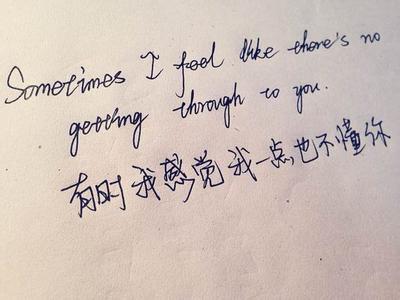 Sometimes I feel like there's no
getting through to you.
有时我感觉我一点也不懂你